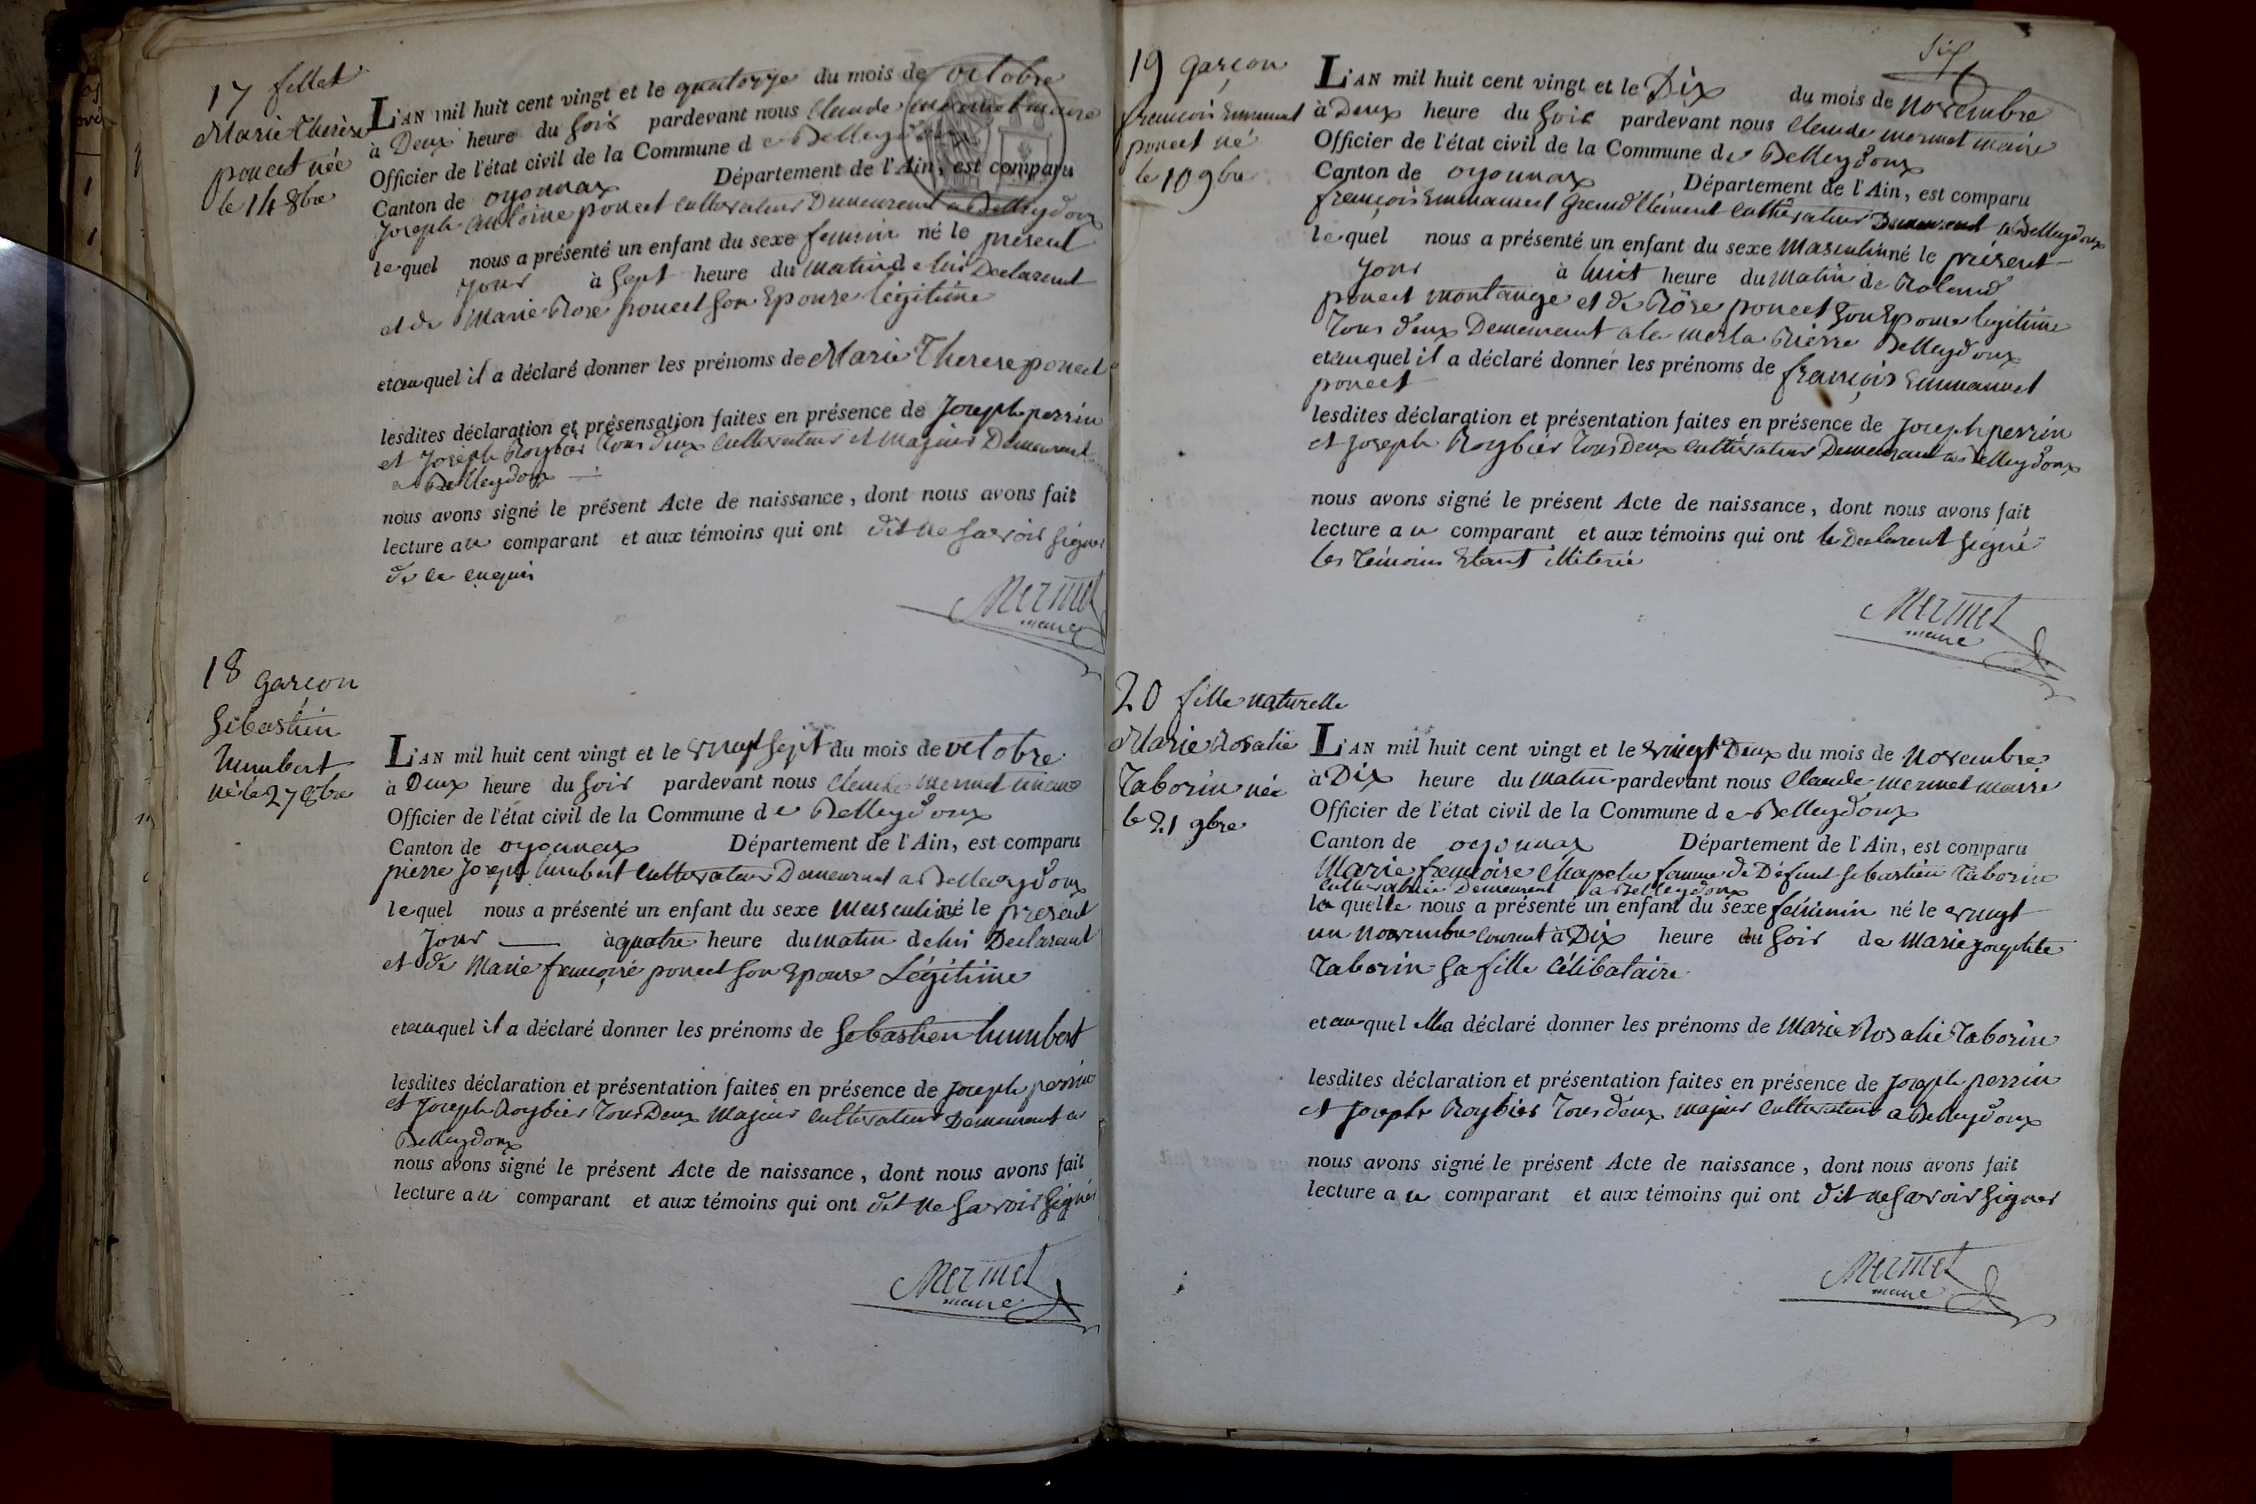 17 fillet
Marie Therèse
poncet née
le 14 8bre
L'AN mil huit cent vingt et le quatorze du mois de octobre
à Deux heure du soir pardevant nous Claude mermet maire
Officier de l'état civil de la Commune de Belleydoux
Canton de oyonnax Département de l'Ain, est comparu
Joseph antoine poncet cultivateur Demeurant a Belleydoux
lequel nous a présenté un enfant du sexe feminin né le présent
jour à sept heure du matin de lui Declarant
et de Marie Rose poncet son Epouse légitime
et auquel il a déclaré donner les prénoms de Marie Therese poncet
lesdites déclaration et présensation faites en présence de Joseph perrin
et Joseph Roybier tous deux cultivateurs et majeurs Demeurant
a Belleydoux
nous avons signé le présent Acte de naissance, dont nous avons fait
lecture au comparant et aux témoins qui ont dit ne savoir signer
de ce enquis
Mermet
maire
18 garçon
Sébastien
humbert
né le 27 8bre
L'AN mil huit cent vingt et le vingt sept du mois de octobre
à Deux heure du soir pardevant nous Claude mermet maire
Officier de l'état civil de la Commune de Belleydoux
Canton de oyonnax Département de l'Ain, est comparu
pierre Joseph humbert cultivateur Demeurant a Belleydoux
lequel nous a présenté un enfant du sexe masculin né le présent
jour à quatre heure du matin de lui Declarant
et de Marie françoise poncet son Epouse Légitime
et auquel il a déclaré donner les prénoms de Sebastien humbert
lesdites déclaration et présentation faites en présence de Joseph perrin
et Joseph Roybier tous Deux majeurs cultivateurs Demeurant a
Belleydoux
nous avons signé le présent Acte de naissance, dont nous avons fait
lecture au comparant et aux témoins qui ont dit ne savoir signer
Mermet
maire
six
19 garçon
françois Emmanuel
poncet né
le 10 9bre
L'AN mil huit cent vingt et le Dix du mois de novembre
à Deux heure du soir pardevant nous Claude mermet maire
Officier de l'état civil de la Commune de Belleydoux
Canton de oyonnax Département de l'Ain, est comparu
françois Emmanuel Grand Clément cultivateur Demeurant a Belleydoux
lequel nous a présenté un enfant du sexe Masculin né le présent
jour à huit heure du matin de Roland
poncet montange et de Rose poncet son Epouse legitime
tous deux Demeurant a la Belleydoux
et auquel il a déclaré donner les prénoms de françois Emmanuel
poncet
lesdites déclaration et présentation faites en présence de Joseph perrin
et Joseph Roybier tous Deux cultivateurs Demeurant a Belleydoux
nous avons signé le présent Acte de naissance, dont nous avons fait
lecture au comparant et aux témoins qui ont le Declarant signé
les témoins Etant
Mermet
maire
20 fille naturelle
Marie Rosalie
Taborin née
le 21 9bre
L'AN mil huit cent vingt et le vingt Deux du mois de Novembre
à Dix heure du matin pardevant nous Claude mermet maire
Officier de l'état civil de la Commune de Belleydoux
Canton de oyonnax Département de l'Ain, est comparu
Marie françoise Chapelu femme de Défunt Sebastien Taborin
cultivatrice Demeurant a Belleydoux
la quelle nous a présenté un enfant du sexe féminin né le vingt
un novembre courant à Dix heure du soir de Marie josephte
Taborin sa fille célibataire
et auquel Elle a déclaré donner les prénoms de Marie Rosalie Taborin
lesdites déclaration et présentation faites en présence de Joseph perrin
et Joseph Roybier tous deux majeurs cultivateurs a Belleydoux
nous avons signé le présent Acte de naissance, dont nous avons fait
lecture au comparant et aux témoins qui ont dit ne savoir signer
Mermet
maire